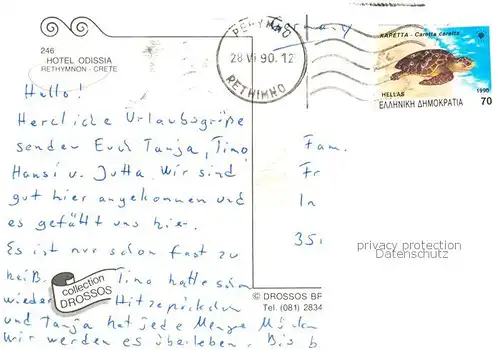 246
HOTEL ODISSIA
RETHYMNON - CRETE
ΡΕΘΥΜΝΟ
28 VI 90.12
RETHIMNO
Germany
KAPETTA - Caretta caretta
HELLAS
1990
ΕΛΛΗΝΙΚΗ ΔΗΜΟΚΡΑΤΙΑ 70
Hello!
Herzliche Urlaubsgrüße
senden Euch Tanja, Timo,
Hansi u. Jutta. Wir sind
gut hier angekommen und
es gefällt uns hier.
Es ist nur schon fast zu
heiß. Timo hatte schon
wieder Hitzepickelchen
und Tanja hat jede Menge
Wir werden es überleben. Bis b
Fam.
Fr
In
35
privacy protection
Datenschutz
collection
DROSSOS
© DROSSOS BR
Tel. (081) 2834